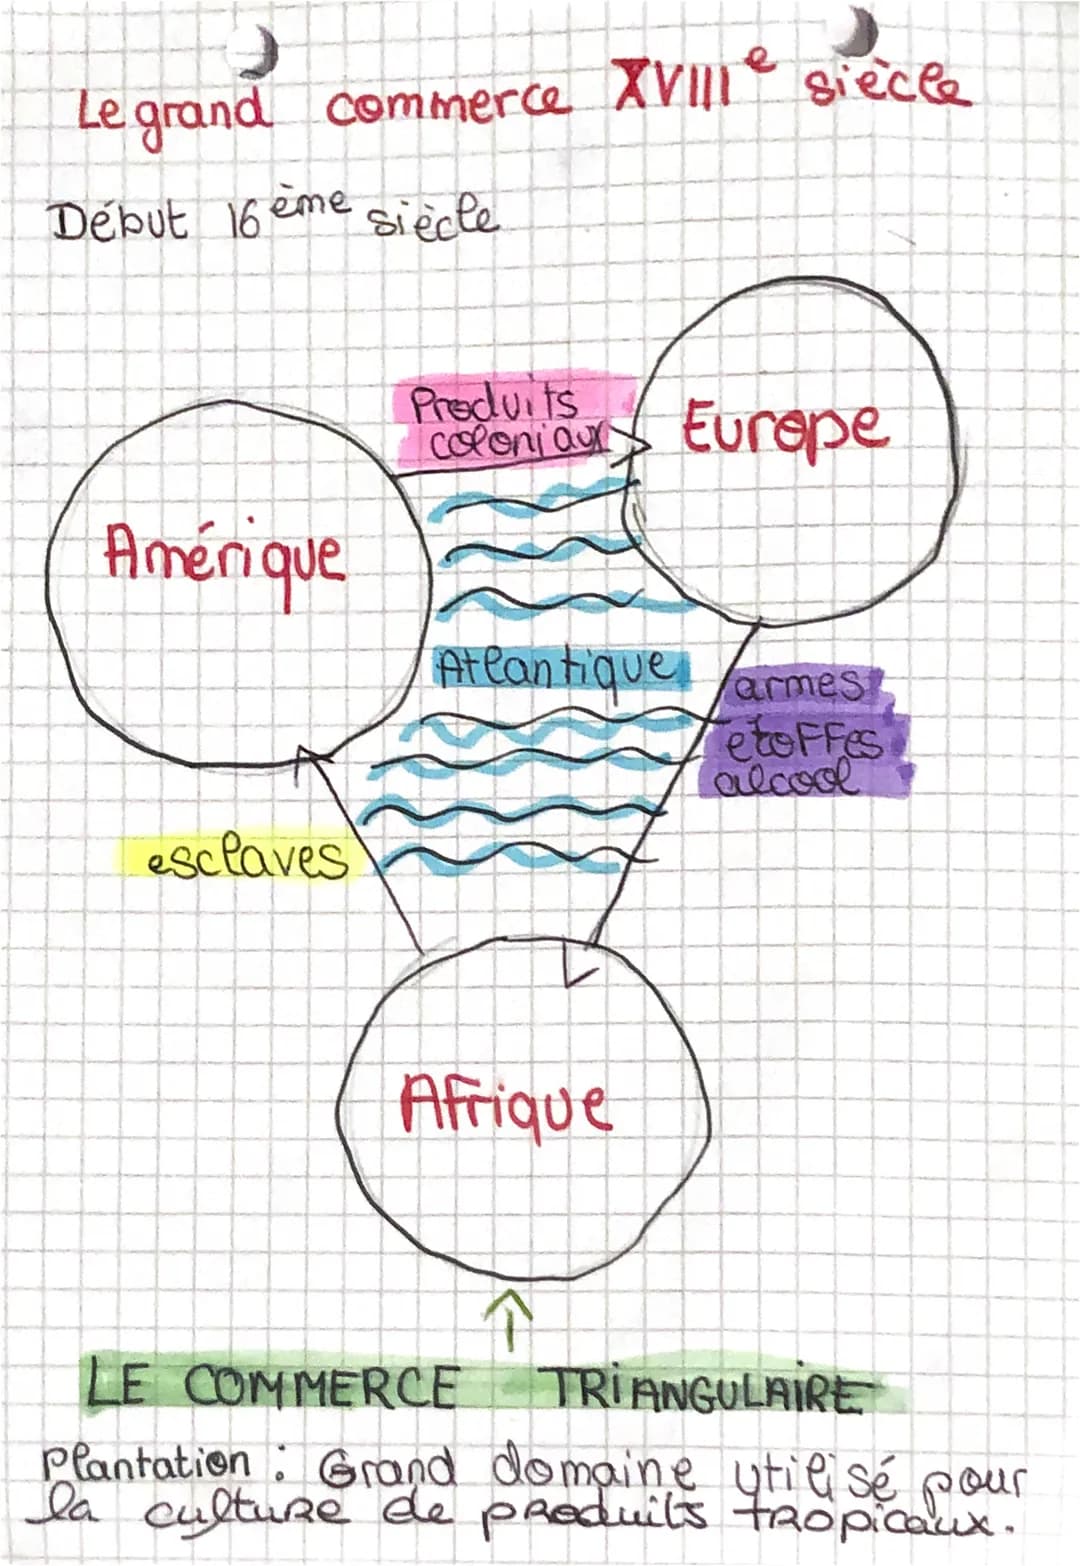 Le grand commerce XVIIIe siècle
Début 16ème siècle
Produits
coloniaux
Europe
Amérique
Atlantique
armes
etoffes
alcool
esclaves
Afrique
LE COMMERCE TRIANGULAIRE
Plantation : Grand domaine utilisé pour
la culture de produits tropicaux.